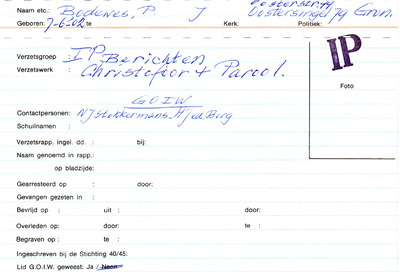 Naam etc.: Bodewes, P J Oosterstr.
Geboren: 7-6-02 te Kerk: Oostersingel Gron. Politiek:
IP
Verzetsgroep : IP, Berichten
Verzetswerk : Christofoor + Parool.
Foto
GOIW
Contactpersonen: NJ Stokkermans, HJ vd Berg
Schuilnaam :
Verzetsrapp. ingel. dd. : bij:
Naam genoemd in rapp.:
op bladzijde:
Gearresteerd op : door:
Gevangen gezeten in :
Bevrijd op : uit : door:
Overleden op: door: te :
Begraven op : te :
Ingeschreven bij de Stichting 40/45:
Lid G.O.I.W. geweest: Ja / Neen